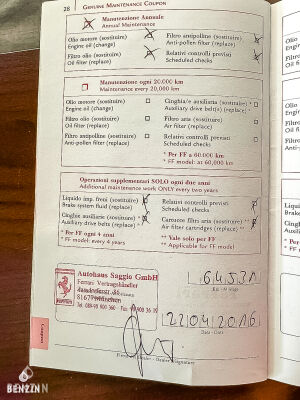 28 GENUINE MAINTENANCE COUPON
Manutenzione Annuale
Annual Maintenance
Olio motore (sostituire)
Engine oil (change)
Filtro antipolline (sostituire)
Anti-pollen filter (replace)
Filtro olio (sostituire)
Oil filter (replace)
Relativi controlli previsti
Scheduled checks
Manutenzione ogni 20.000 km
Maintenance every 20,000 km
Olio motore (sostituire)
Engine oil (change)
Cinghia/e ausiliaria (sostituire) *
Auxiliary drive belt(s) (replace) *
Filtro olio (sostituire)
Oil filter (replace)
Filtro aria (sostituire)
Air filter (replace)
Filtro antipolline (sostituire)
Anti-pollen filter (replace)
Relativi controlli previsti
Scheduled checks
* Per FF a 60.000 km
* FF model: at 60,000 km
Operazioni supplementari SOLO ogni due anni
Additional maintenance work ONLY every two years
Liquido imp. freni (sostituire)
Brake system fluid (replace)
Relativi controlli previsti
Scheduled checks
Cinghie ausiliarie (sostituire) *
Auxiliary drive belt(s) (replace) *
Cartucce filtri aria (sostituire) **
Air filter cartridges (replace) **
* Per FF ogni 4 anni
* FF model: every 4 years
** Vale solo per FF
** Applicable for FF model
Autohaus Saggio GmbH
Ferrari Vertragshändler
81677 München
64531
22042016
Date
Signature
Coupons
BENZINN